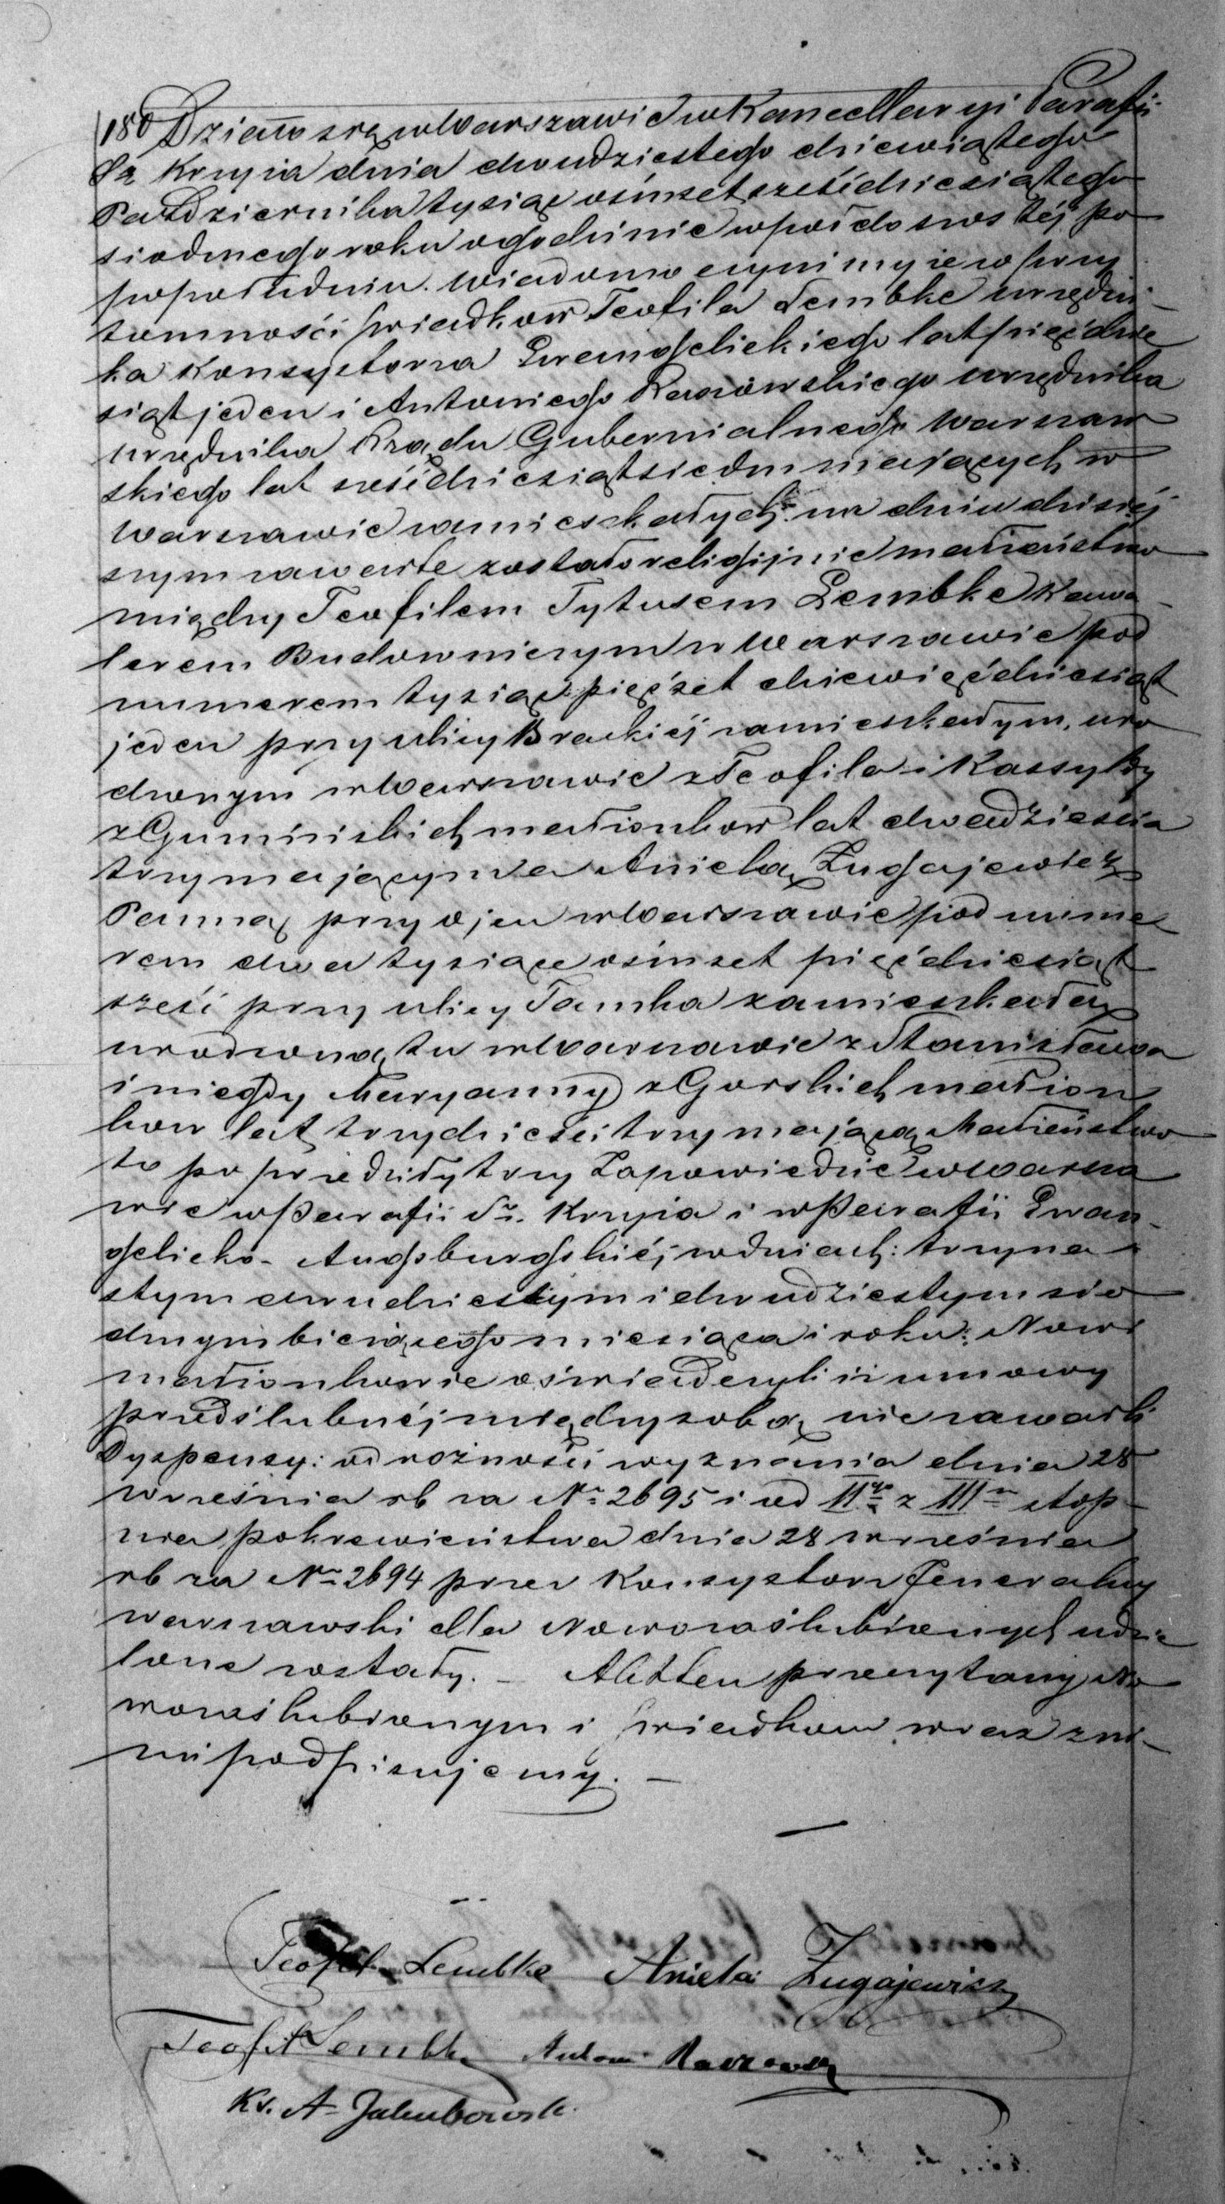 180 Działo się w Warszawie w Kancellaryi Parafii
Śg Krzyża dnia dwudziestego dziewiątego
Października tysiąc ośmset sześćdziesiątego
siódmego roku o godzinie wpół do szóstéj po
popołudniu. Wiadomo czynimy że w przy
tomności świadków Teofila Lembke urzędni-
ka Konsystorza Ewangelickiego lat pięćdzie
siąt jeden i Antoniego Raszowskiego urzędnika
urzędnika Rządu Gubernialnego Warszaw
skiego lat sześćdziesiąt siedm mających w
Warszawie zamieszkałych: na dniu dzisiéj
szym zawarte zostało religijnie małżeństwo
między Teofilem Tytusem Lembke Kawa-
lerem Budowniczym w Warszawie pod
numerem tysiąc pięćset dziewięćdziesiąt
jeden przy ulicy Brackiéj zamieszkałym, uro
dzonym w Warszawie z Teofila i Kassyldy
z Gumińskich małżonków lat dwadzieścia
trzy mającym a Anielą Żugajewicz
Panną przy ojcu w Warszawie pod nume
rem dwa tysiące ośmset pięćdziesiąt
sześć przy ulicy Tamka zamieszkałą
urodzoną tu w Warszawie z Stanisława
i niegdy Maryanny z Gorskich małżon
ków lat trzydzieści trzy mającą Małżeństwo
to poprzedziły trzy Zapowiedzie w Warsza
wie w Parafii Śg. Krzyża i w Parafii Ewan-
gelicko-Augsburgskiéj w dniach: trzyna
stym dwudziestym i dwudziestym sió
dmym bieżącego miesiąca i roku: Nowi
małżonkowie oświadczyli iż umowy
przedślubnéj między sobą nie zawarli
Dyspensy: od rożności wyznania dnia 28
września rb za Nr 2695 i od IIgo z IIIm stop-
nia pokrewieństwa dnia 28 września
rb za Nr 2694 przez Konsystorz Jeneralny
warszawski dla Nowozaślubionych udzie
lone zostały. – Akt ten przeczytany No
wozaślubionym i świadkom wraz z ni-
mi podpisujemy. –
Teofil Lembke Aniela Żugajewicz
Teofil Lembke Antoni Raszowski
Ks. A. Jakubowski.